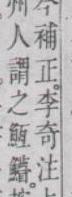 今補正。李奇注
州人謂之䱭䱜。